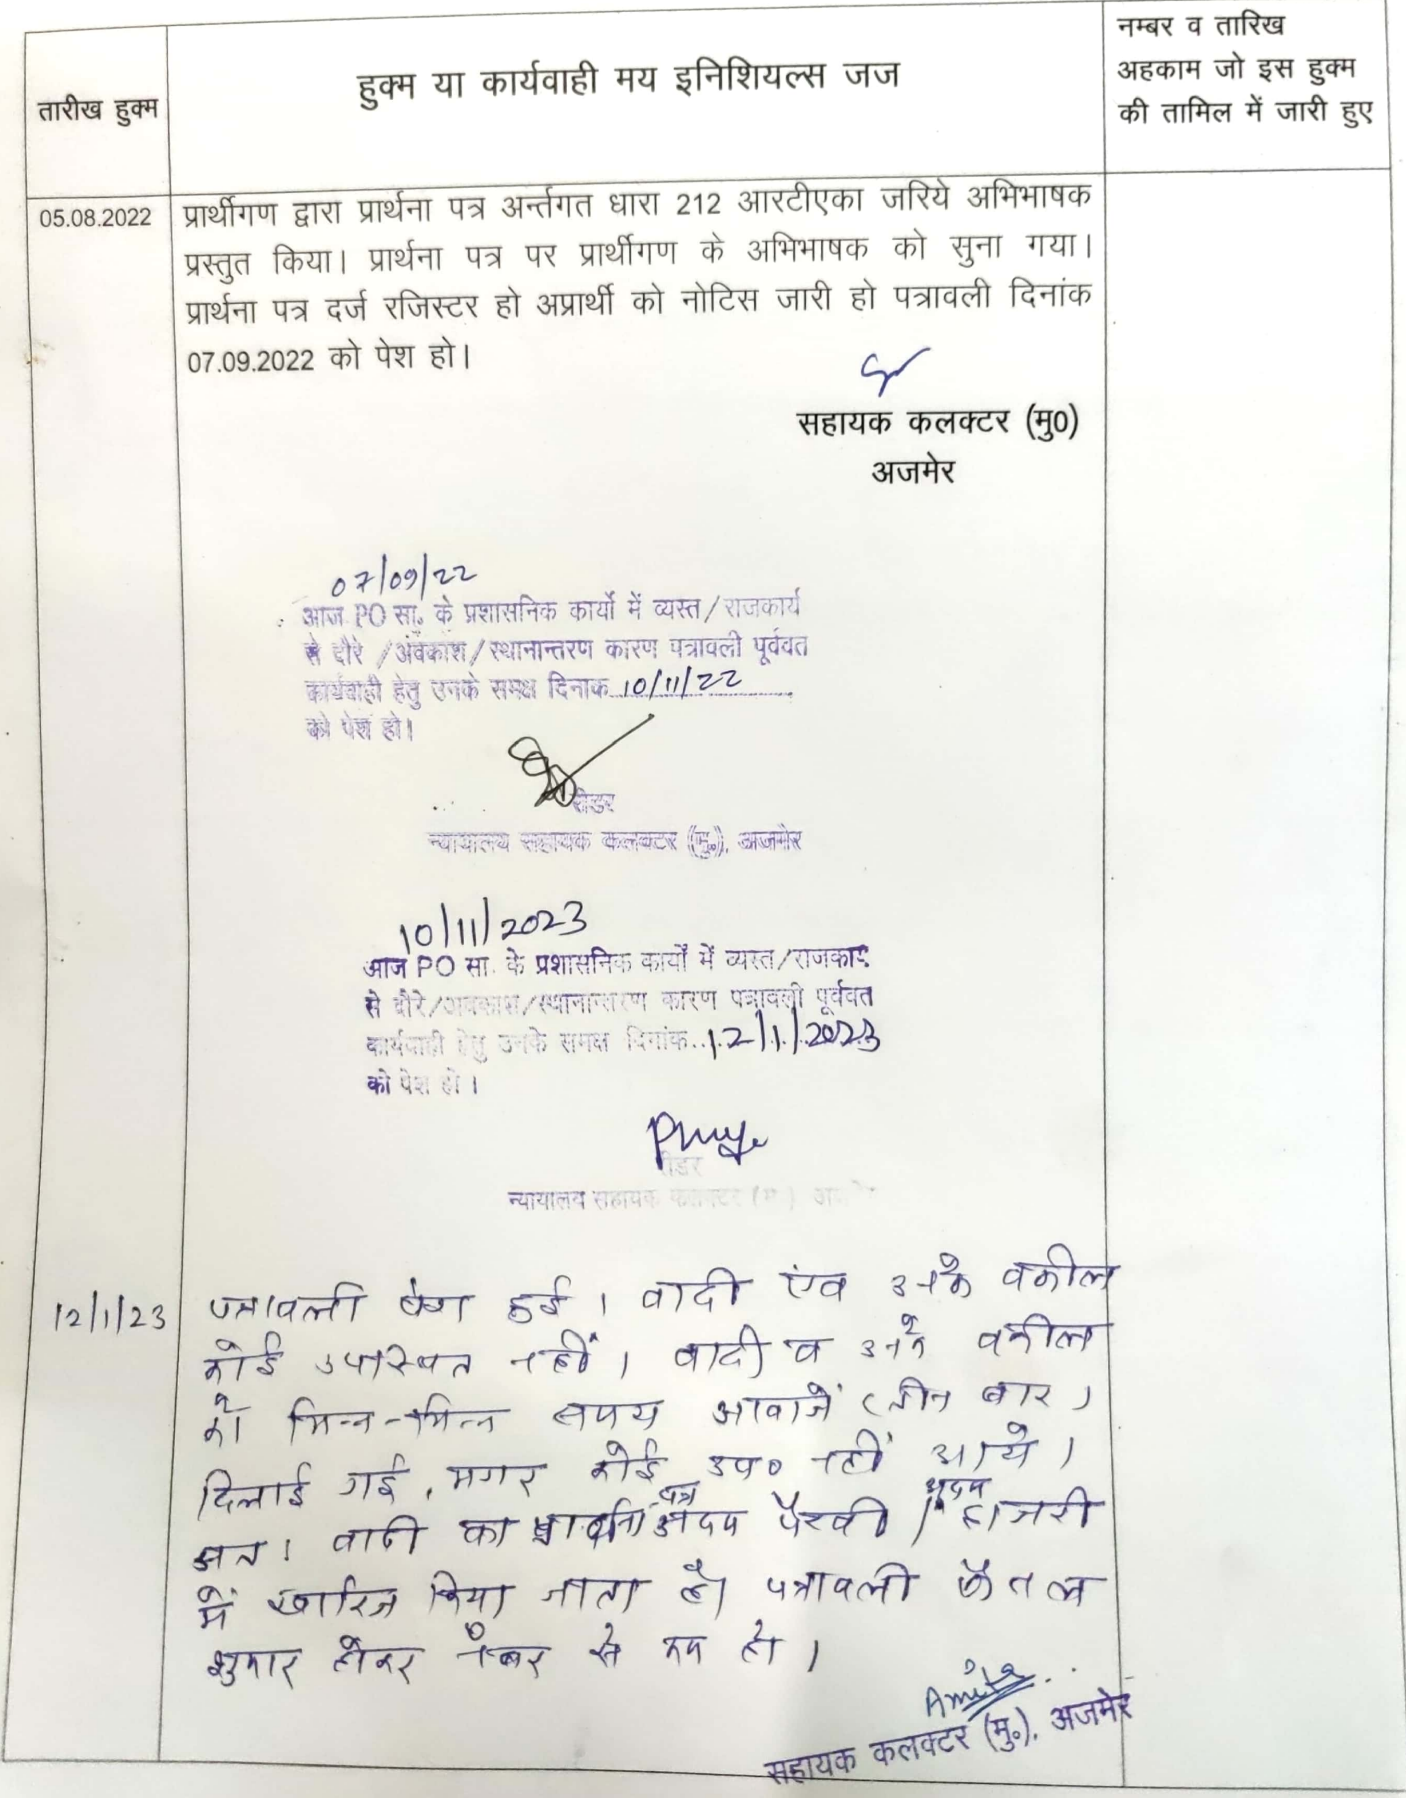 तारीख हुक्म
हुक्म या कार्यवाही मय इनिशियल्स जज
नम्बर व तारिख
अहकाम जो इस हुक्म
की तामिल में जारी हुए
05.08.2022
प्रार्थीगण द्वारा प्रार्थना पत्र अर्न्तगत धारा 212 आरटीएका जरिये अभिभाषक
प्रस्तुत किया। प्रार्थना पत्र पर प्रार्थीगण के अभिभाषक को सुना गया।
प्रार्थना पत्र दर्ज रजिस्टर हो अप्रार्थी को नोटिस जारी हो पत्रावली दिनांक
07.09.2022 को पेश हो।
सहायक कलक्टर (मु0)
अजमेर
07/09/22
आज PO सा. के प्रशासनिक कार्यो में व्यस्त/राजकार्य
से दौरे /अवकाश/स्थानान्तरण कारण पत्रावली पूर्ववत
कार्यवाही हेतु उनके समक्ष दिनाक 10/11/22
को पेश हो।
रीडर
न्यायालय सहायक कलक्टर (मु०), अजमेर
10/11/2023
आज PO सा. के प्रशासनिक कार्यों में व्यस्त/राजकार्य
से दौरे/अवकाश/स्थानान्तरण कारण पत्रावली पूर्ववत
कार्यवाही हेतु उनके समक्ष दिनांक..12/1/2023
को पेश हो।
रीडर
न्यायालय सहायक कलक्टर (मु.) अजमेर
12/1/23
पत्रावली पेश हुई। वादी एंव उनके वकील
कोई उपस्थित नहीं। वादी व उनके वकील
को भिन्न-भिन्न समय आवाजें (तीन बार)
दिलाई गई, मगर कोई उप० नहीं आये।
अतः वादी का प्रार्थना पत्र अदम पैरवी / अदम हाजरी
में खारिज किया जाता है। पत्रावली फैसल
शुमार होकर नंबर से कम हो।
Amita
सहायक कलक्टर (मु०), अजमेर